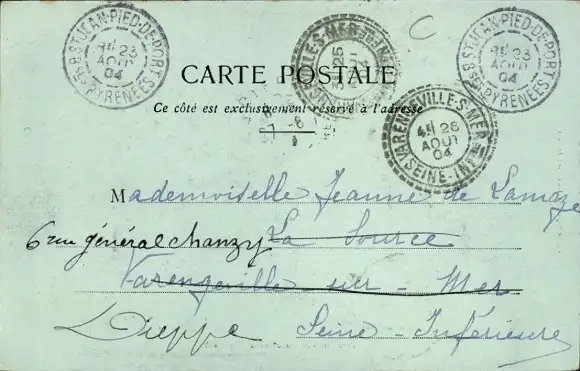 ST JEAN-PIED-DE-PORT
23
AOUT
04
BSES PYRENEES
ST JEAN-PIED-DE-PORT
23
AOUT
04
BSES PYRENEES
VARENGEVILLE-S-MER
4E 26
AOUT
04
SEINE-INFRE
CARTE POSTALE
Ce côté est exclusivement réservé à l'adresse
Mademoiselle Jeanne de Lamaze
6 rue général chanzy La Source
Varengeville sur - Mer
Dieppe Seine - Inférieure